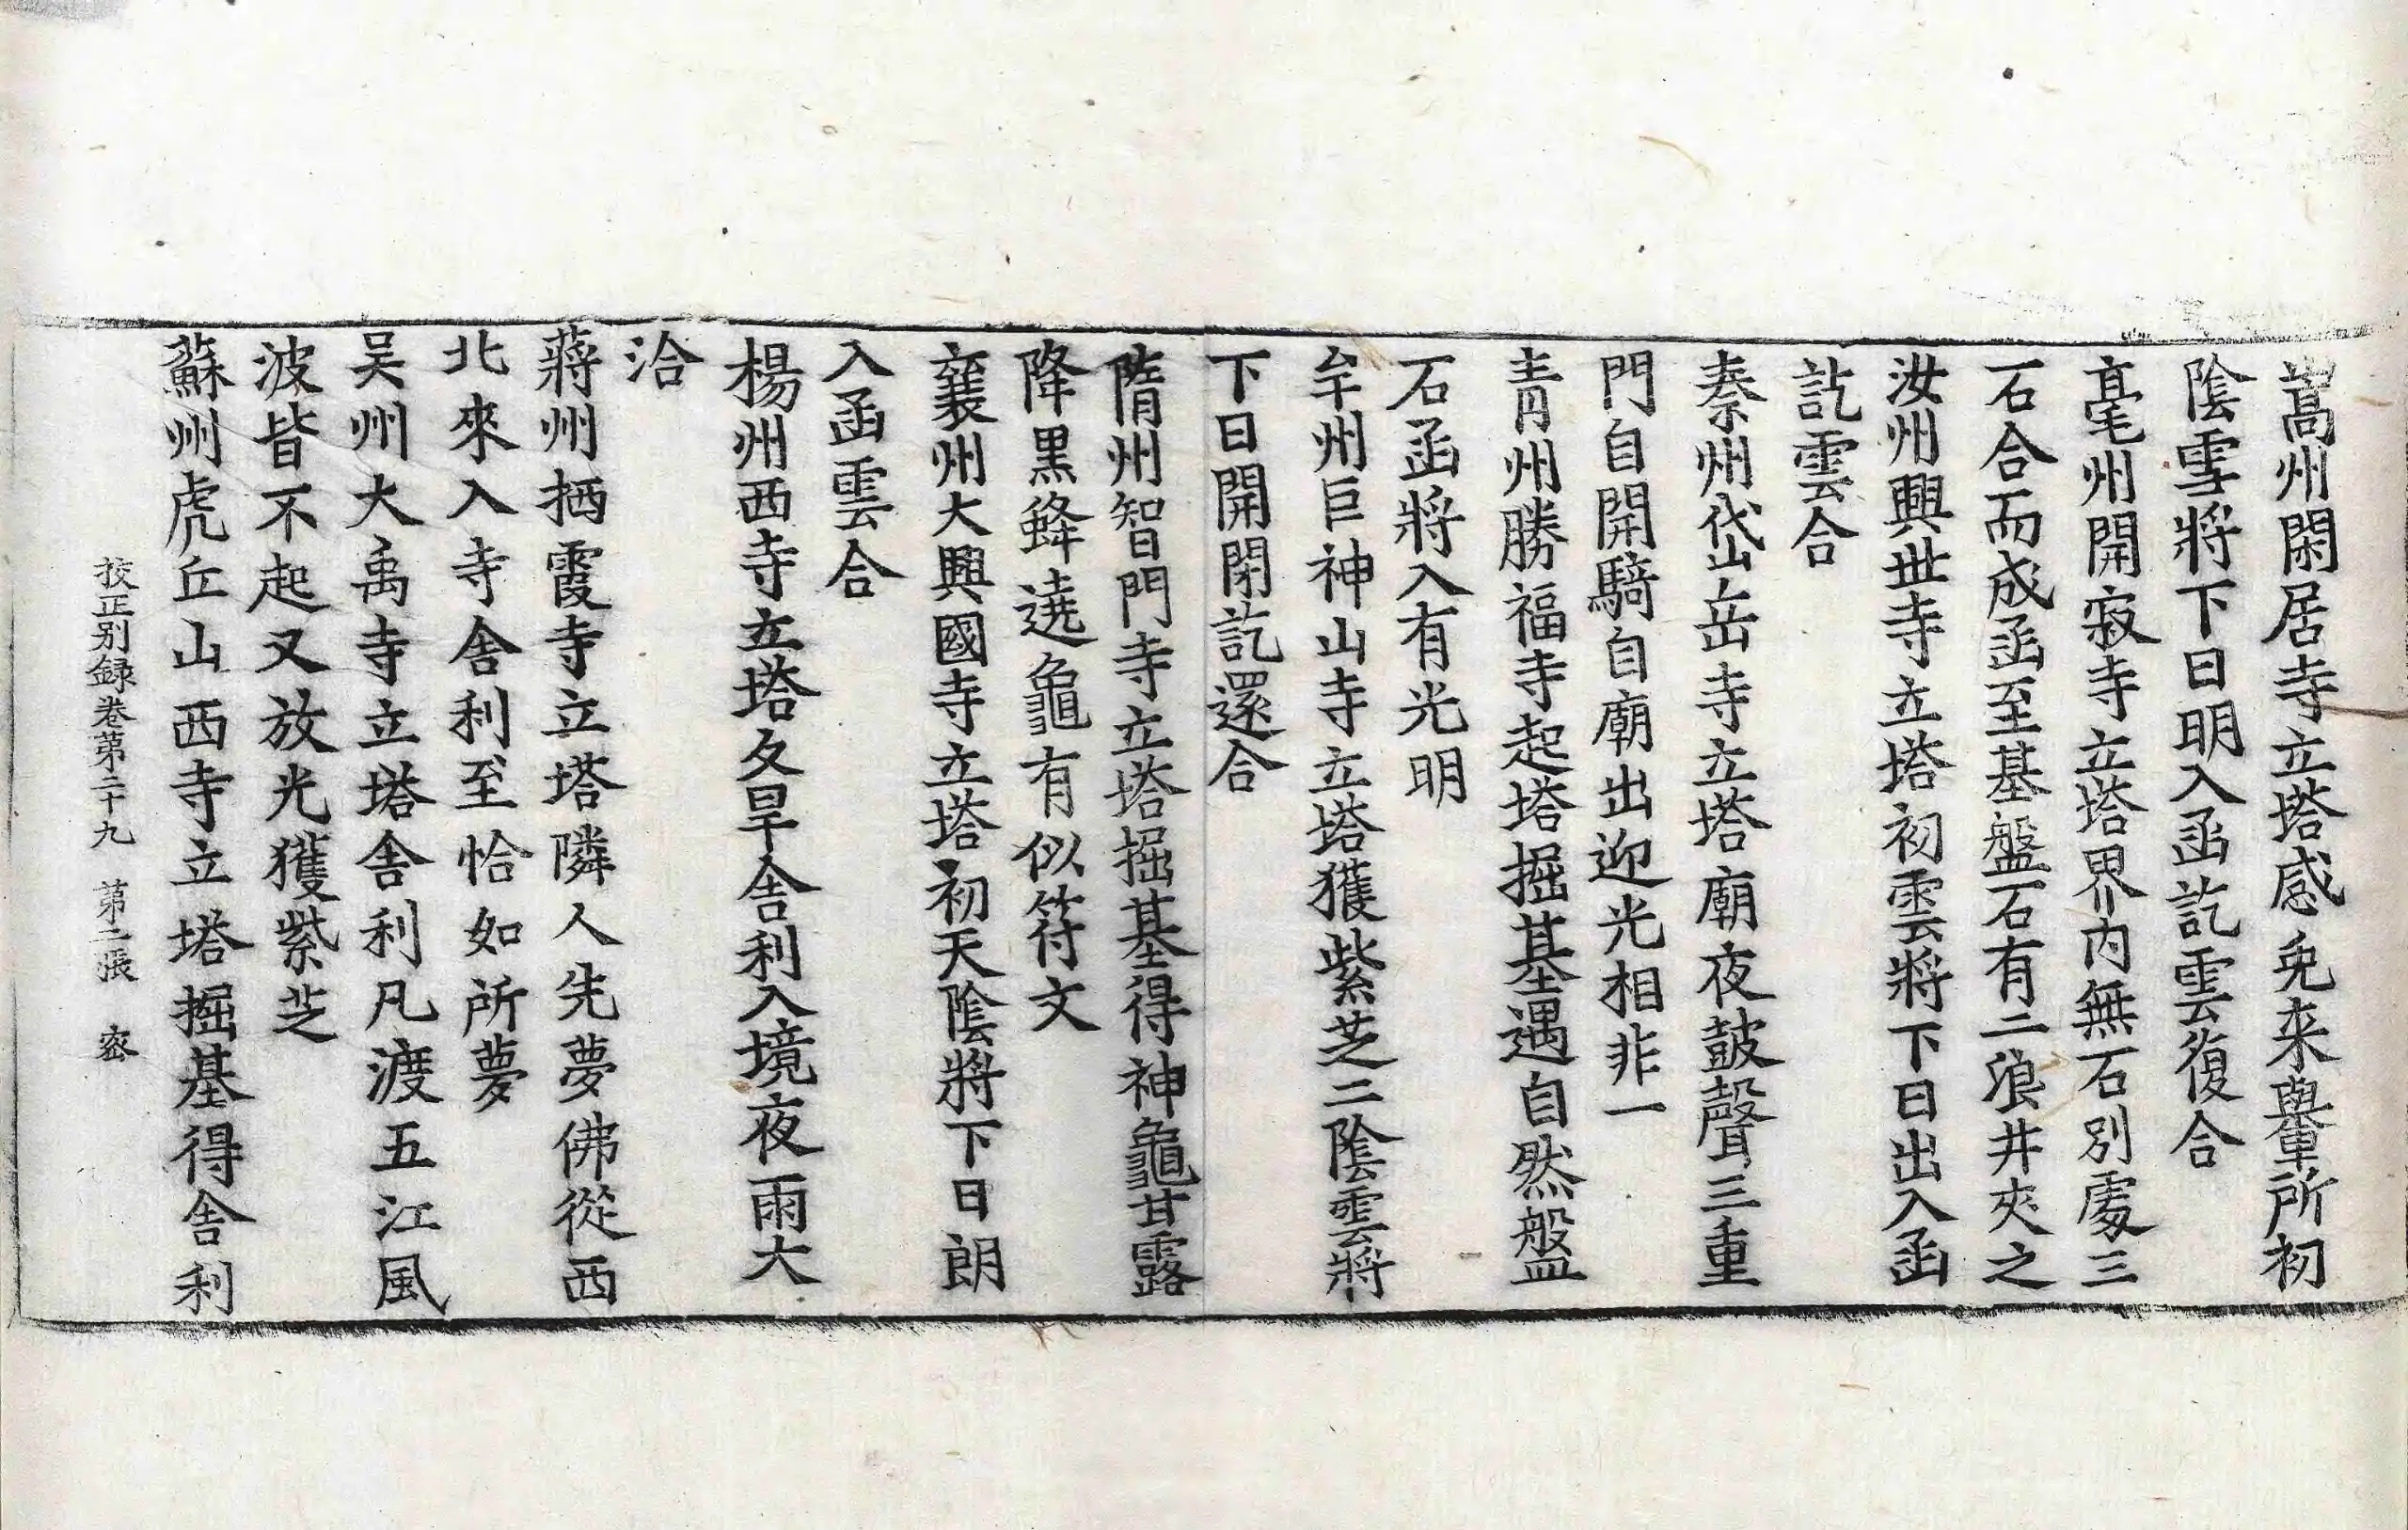 嵩州閑居寺立塔感兔来轝所初
陰雪將下日明入函訖雲復合
亳州開寂寺立塔界内無石別處三
石合而成函至基盤石有二浪井夾之
汝州興世寺立塔初雲將下日出入函
訖雲合
泰州岱岳寺立塔廟夜鼓聲三重
門自開騎自廟出迎光相非一
青州勝福寺起塔掘基遇自然盤
石函將入有光明
牟州巨神山寺立塔獲紫芝二陰雲將
下日開閉訖還合
隋州智門寺立塔掘基得神龜甘露
降黒蜂遶龜有似符文
襄州大興國寺立塔初天陰將下日朗
入函雲合
楊州西寺立塔久旱舍利入境夜雨大
洽
蔣州栖霞寺立塔隣人先夢佛從西
北來入寺舍利至恰如所夢
吴州大禹寺立塔舍利凡渡五江風
波皆不起又放光獲紫芝
蘇州虎丘山西寺立塔掘基得舍利
挍正别録卷第二十九 第二張 密